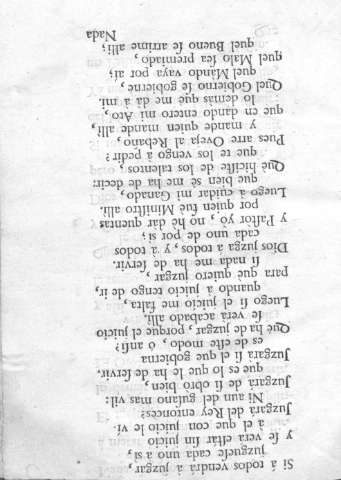 Si á todos vendrá á juzgar,
juzguese cada uno a sì,
y se verá estár sin juicio
à el que con juicio le vì.
Juzgará del Rey entonces?
Ni aun del gusano mas vil:
Juzgará de si obrò bien,
que es lo que le ha de servir.
Juzgará si el que gobierna
es de este modo, ò ansi?
Que ha de juzgar, porque el juicio
se verá acabado alli.
Luego si el juicio me falta,
quando à juicio tengo de ir,
para que quiero juzgar,
si nada me ha de servir.
Dios juzga a todos, y à todos
cada uno de por si;
y Pastor yò, no he dàr quentas
por quien fuè Ministro alli.
Luego à cuidar mi Ganado,
que bien sè me ha de decir:
Què hiciste de los talentos,
que te los vengo à pedir?
Pues arre Oveja al Rebaño,
y mande quien mande alli,
que en dando entero mi Ato,
lo demàs què me dà à mi.
Quel Gobierno se gobierne,
quel Mándo vaya por ai;
quel Malo sea premiado,
quel Bueno se arrime alli;
Nada